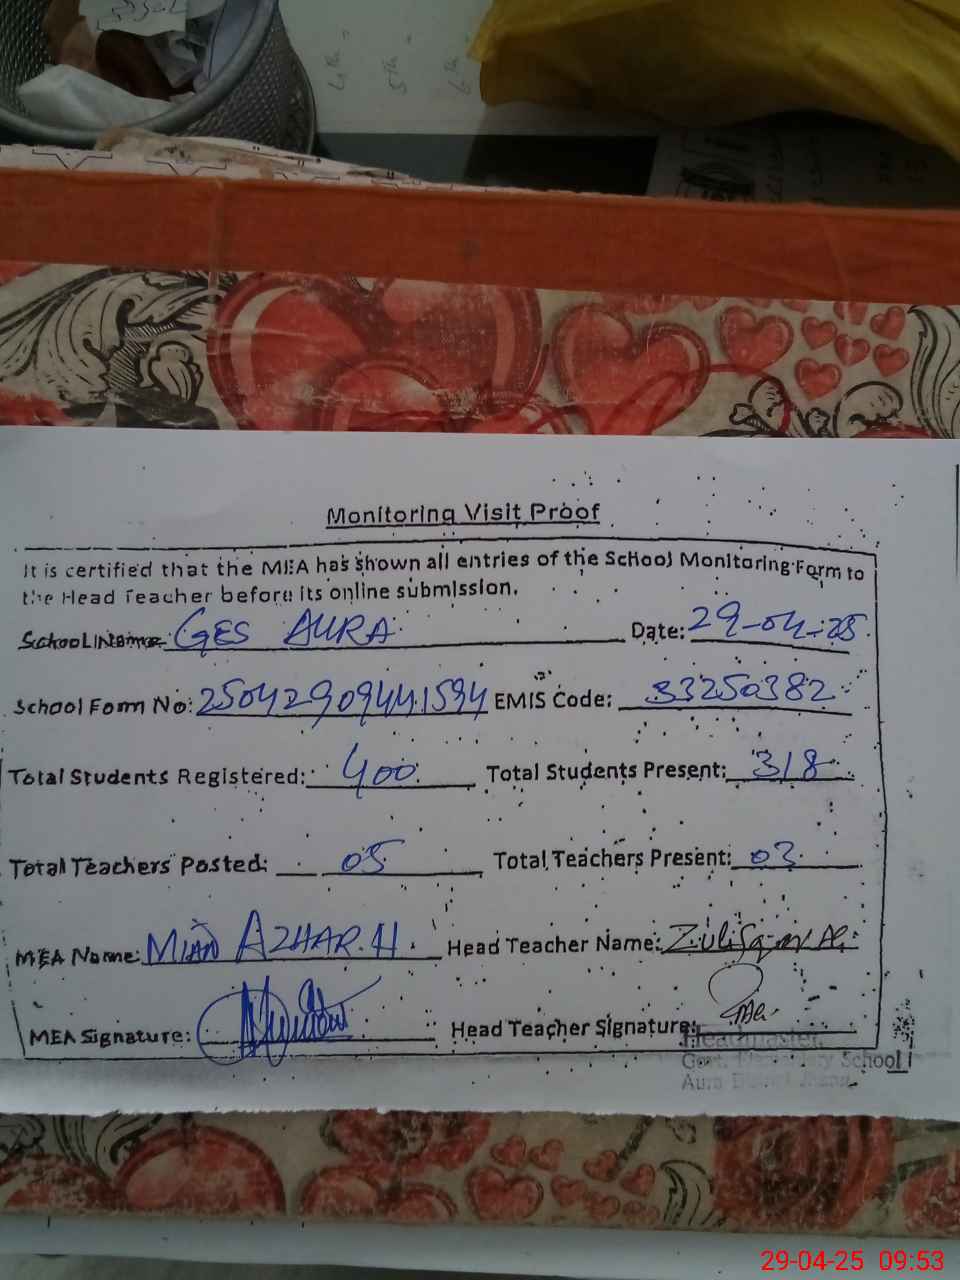 4th -
5th -
6th -
Monitoring Visit Proof
It is certified that the MEA has shown all entries of the School Monitoring Form to
the Head Teacher before its online submission.
School Name GES AURA Date: 29-04-25
School Form No: 25042909441594 EMIS Code: 33250382
Total Students Registered: 400 Total Students Present: 318
Total Teachers Posted: 05 Total Teachers Present: 03
MEA Name: MIAN AZHAR.H. Head Teacher Name: Zulifqar Ali
MEA Signature: Head Teacher Signature:
Headmaster
Govt. Elementary School
Aura District Jhang
29-04-25 09:53